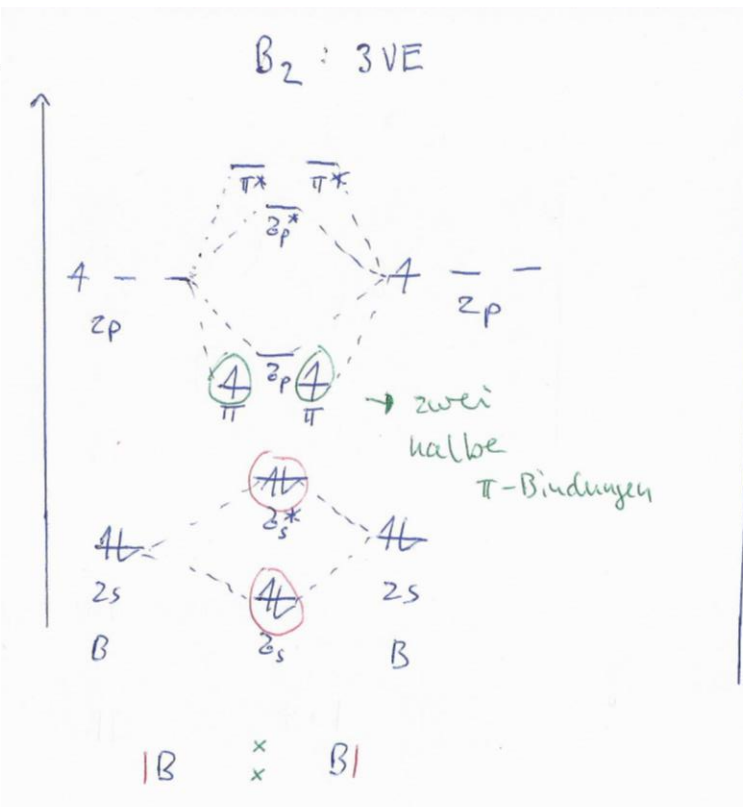 B₂ : 3VE
π* π*
σₚ*
2p 2p
σₚ
π π
→ zwei
halbe
π-Bindungen
σₛ*
2s 2s
B σₛ B
|B × × B|